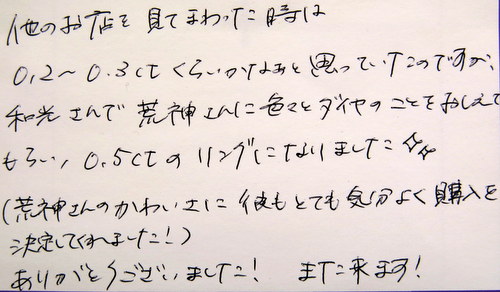 他のお店を見てまわった時は
0.2～0.3ctくらいかなぁと思っていたのですが、
和光さんで荒神さんに色々とダイヤのことをおしえて
もらい、0.5ctのリングになりました☆☆
(荒神さんのかわいさに彼もとても気分よく購入を
決定してくれました！)
ありがとうございました！ また来ます！